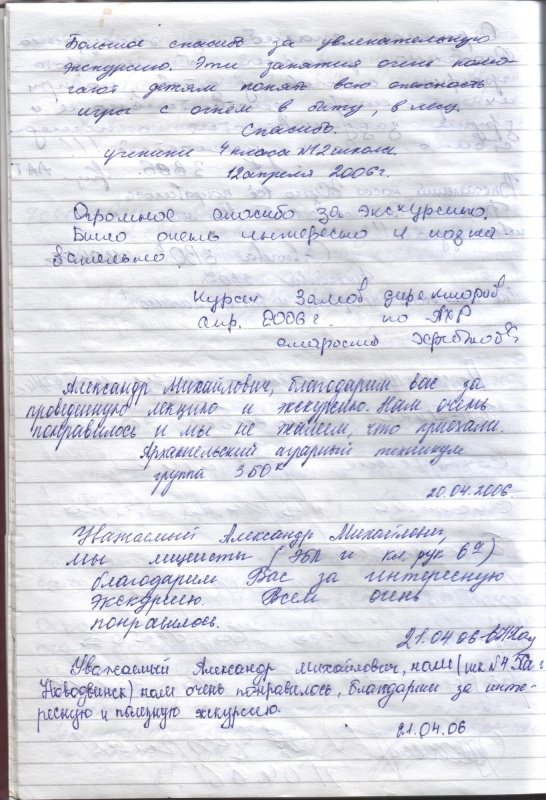 Большое спасибо за увлекательную
экскурсию. Эти занятия очень помо-
гают детям понять всю опасность
игры с огнём в быту, в лесу.
Спасибо.
ученики 4 класса №12 школы.
12 апреля 2006 г.
Огромное спасибо за экскурсию.
Было очень интересно и позна
вательно.
Курсы Замов директоров
апр. 2006 г. по АХР
староста
Александр Михайлович, благодарим вас за
проведенную лекцию и экскурсию. Нам очень
понравилось и мы не жалеем, что приехали.
Архангельский аграрный техникум
группа 360к
20.04.2006
Уважаемый Александр Михайлович,
мы лицеисты (ЭБЛ и кл. рук 6а)
благодарим Вас за интересную
экскурсию. Всем очень
понравилось.
21.04.06
Уважаемый Александр Михайлович, нам (шк №4
Новодвинск) нам очень понравилось, благодарим за инте-
ресную и полезную экскурсию.
21.04.06